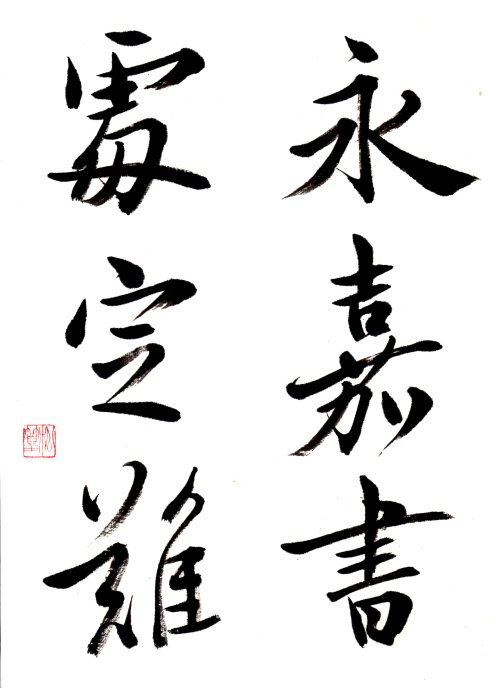 永嘉書
定難